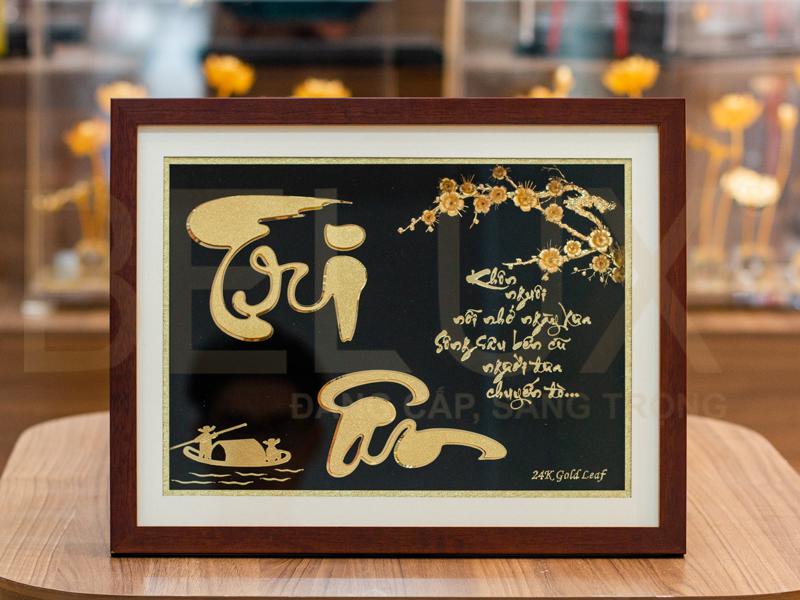 Tri
Ân
Khôn
nguôi
nỗi nhớ ngày xưa
Sông sâu bến cũ
người đưa
chuyến đò...
24K Gold Leaf
BELUX
ĐẲNG CẤP, SANG TRỌNG